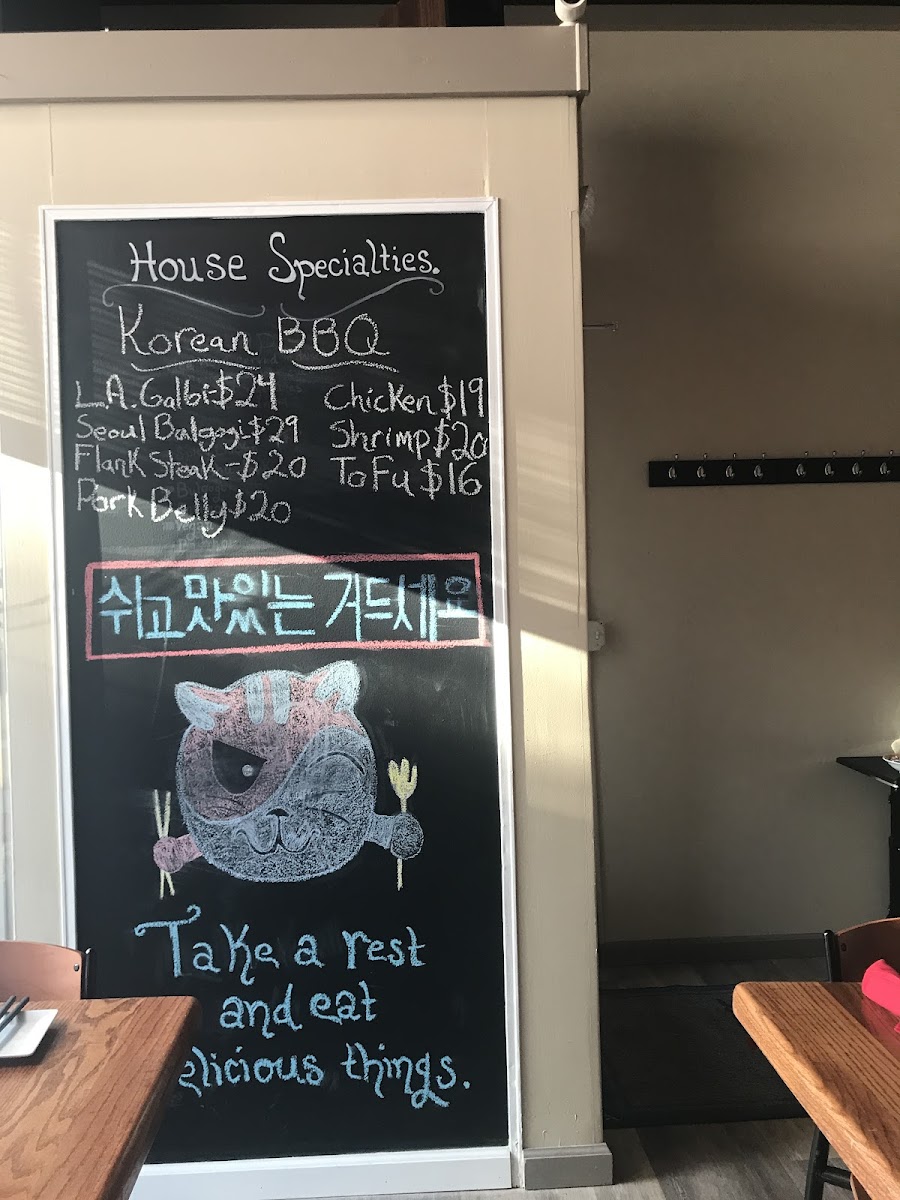 House Specialties.
Korean BBQ
L.A. Galbi-$24
Seoul Balgogi $29
Flank Steak-$20
Pork Belly $20
Chicken $19
Shrimp $20
ToFu $16
쉬고 맛있는 거드세요
Take a rest
and eat
elicious things.